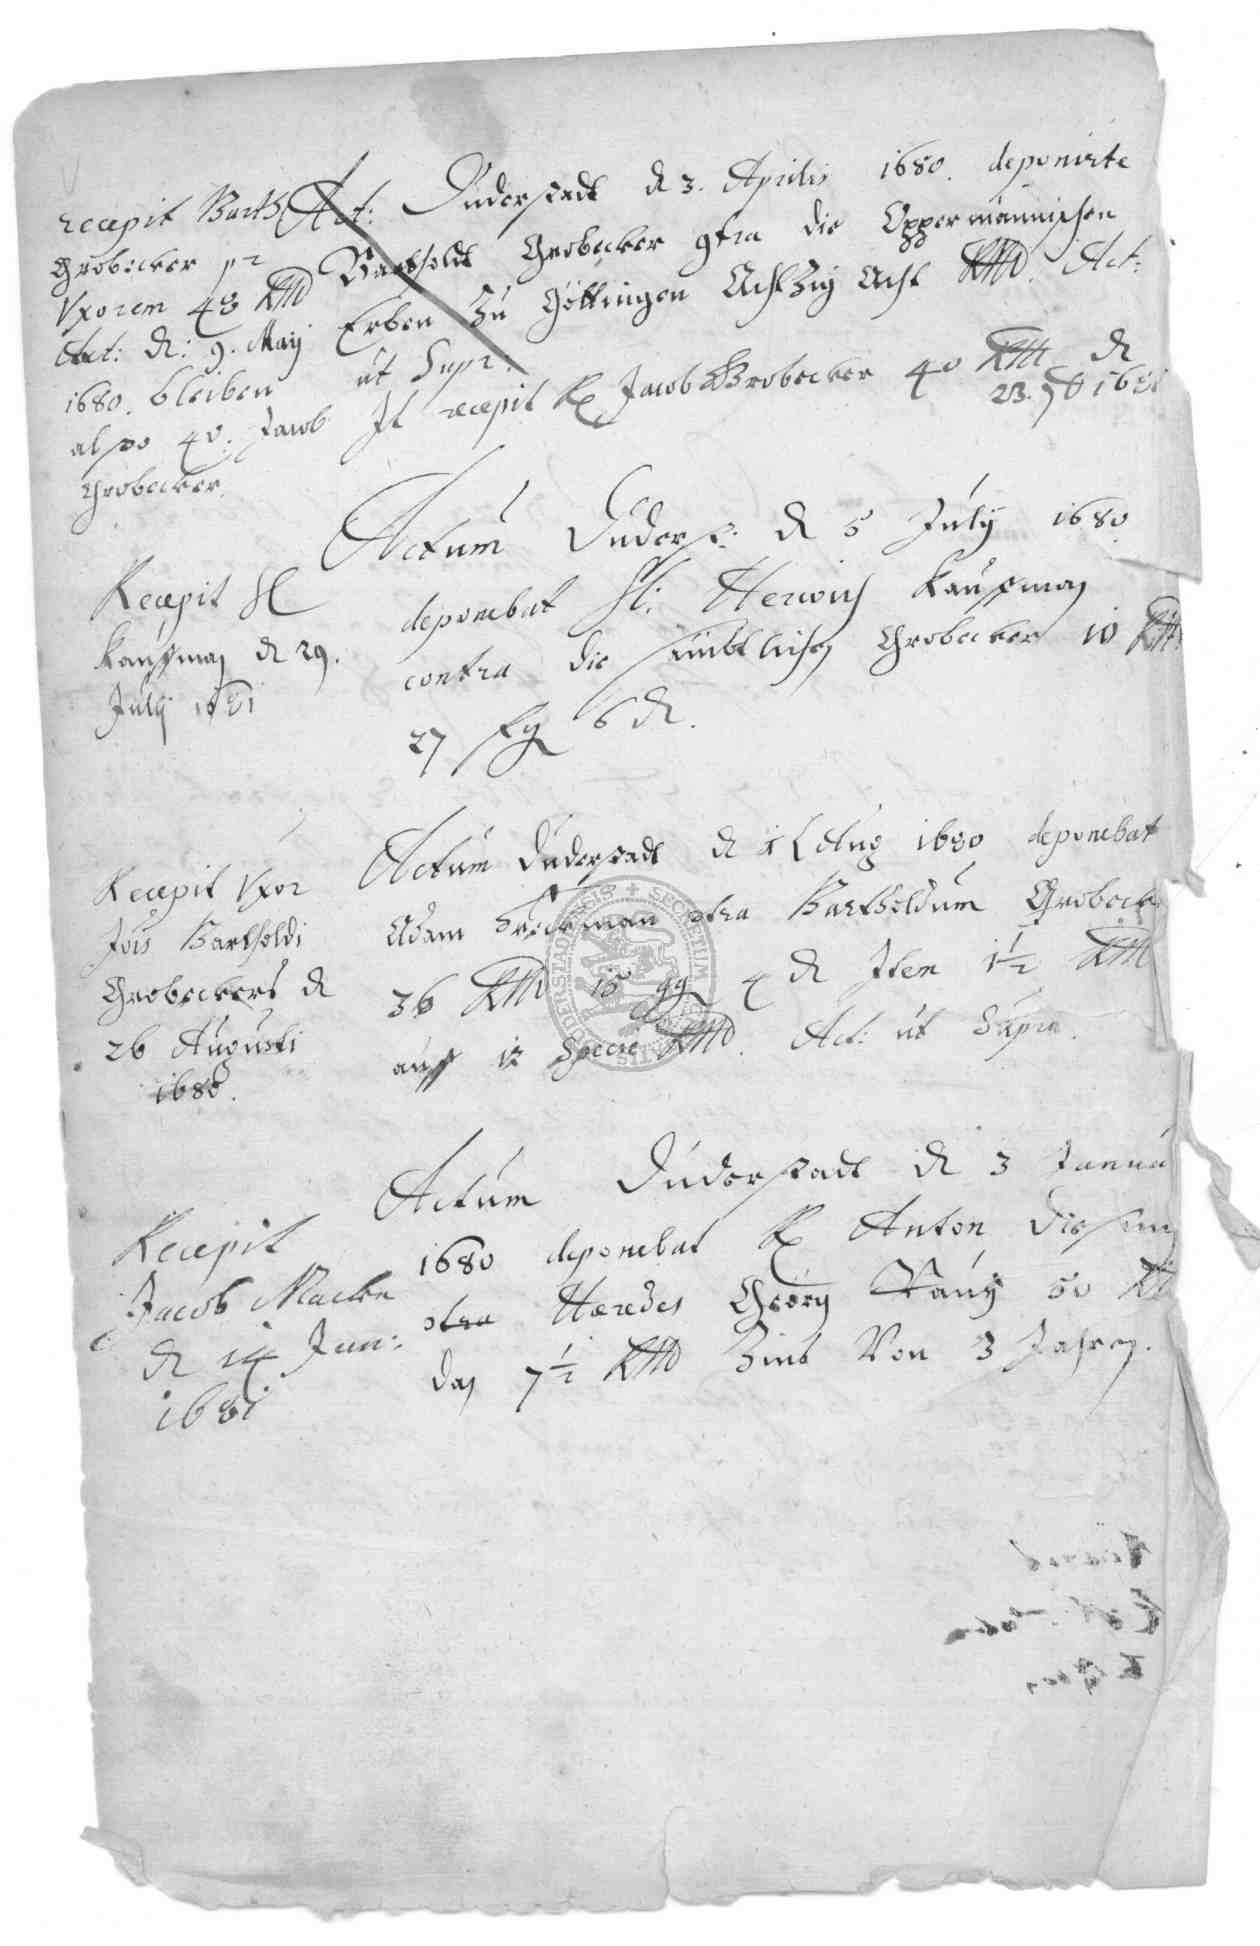 recepit Barth
Grobecker pr
Uxorem 48 Rthl
Act: d: 9. Maÿ
1680. bleiben
also 40. Jacob
Grobecker.
Act: Duderstadt d 3. Aprilis 1680. deponirte
Barthold Grobecker 9tra die Oppermännischen
Erben zu Göttingen Achtzig Acht Rthl. Act:
ut Supr:
It recepit H Jacob Grobecker 40 Rthl d
23. 1681
Recepit H
Kauffman d 29.
Julÿ 1681
Actum Duderst: d 5 Julÿ 1680
deponebat H: Kauffman
contra die sämbtlichen Grobecker 10 Rthl
27 ßg 6 d.
Recepit Uxor
Jois Bartholdi
Grobeckers d
26 Augusti
1680.
Actum Duderstadt d Aug 1680 deponebat
Adam 9tra Bartholdum Grobeck
36 Rthl 18 gg 4 d Item 1½ Rthl
auff 12 Specie Rthl. Act: ut Supra.
SECRETUM
Recepit
Jacob Macke
d 14 Jun:
1681
Actum Duderstadt d 3 Janua
1680 deponebat H Anton
9tra Hæredes Geörg 50 Rt
dan 7½ Rthl Zins Von 3 Jahren.